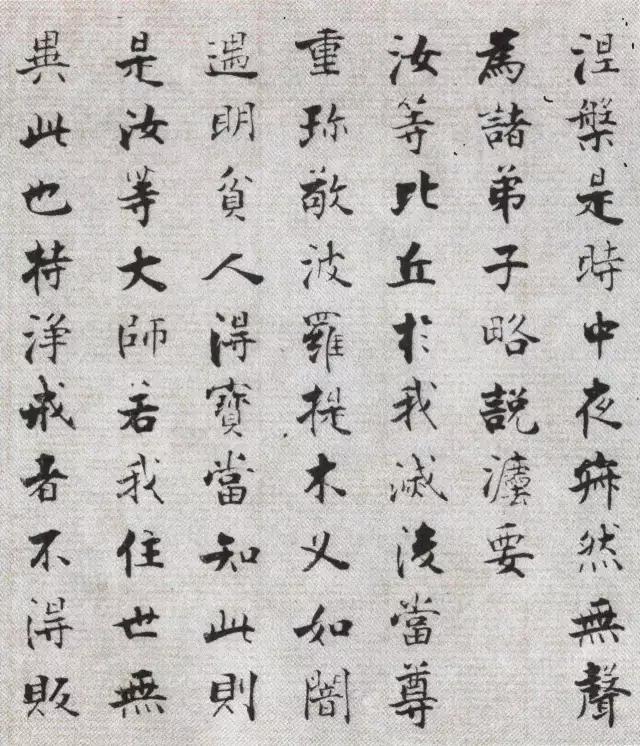 涅槃是時中夜寂然無聲
為諸弟子略説法要
汝等比丘於我滅後當尊
重珎敬波羅提木叉如闇
遇明貧人得寶當知此則
是汝等大師若我住世無
異此也持淨戒者不得販